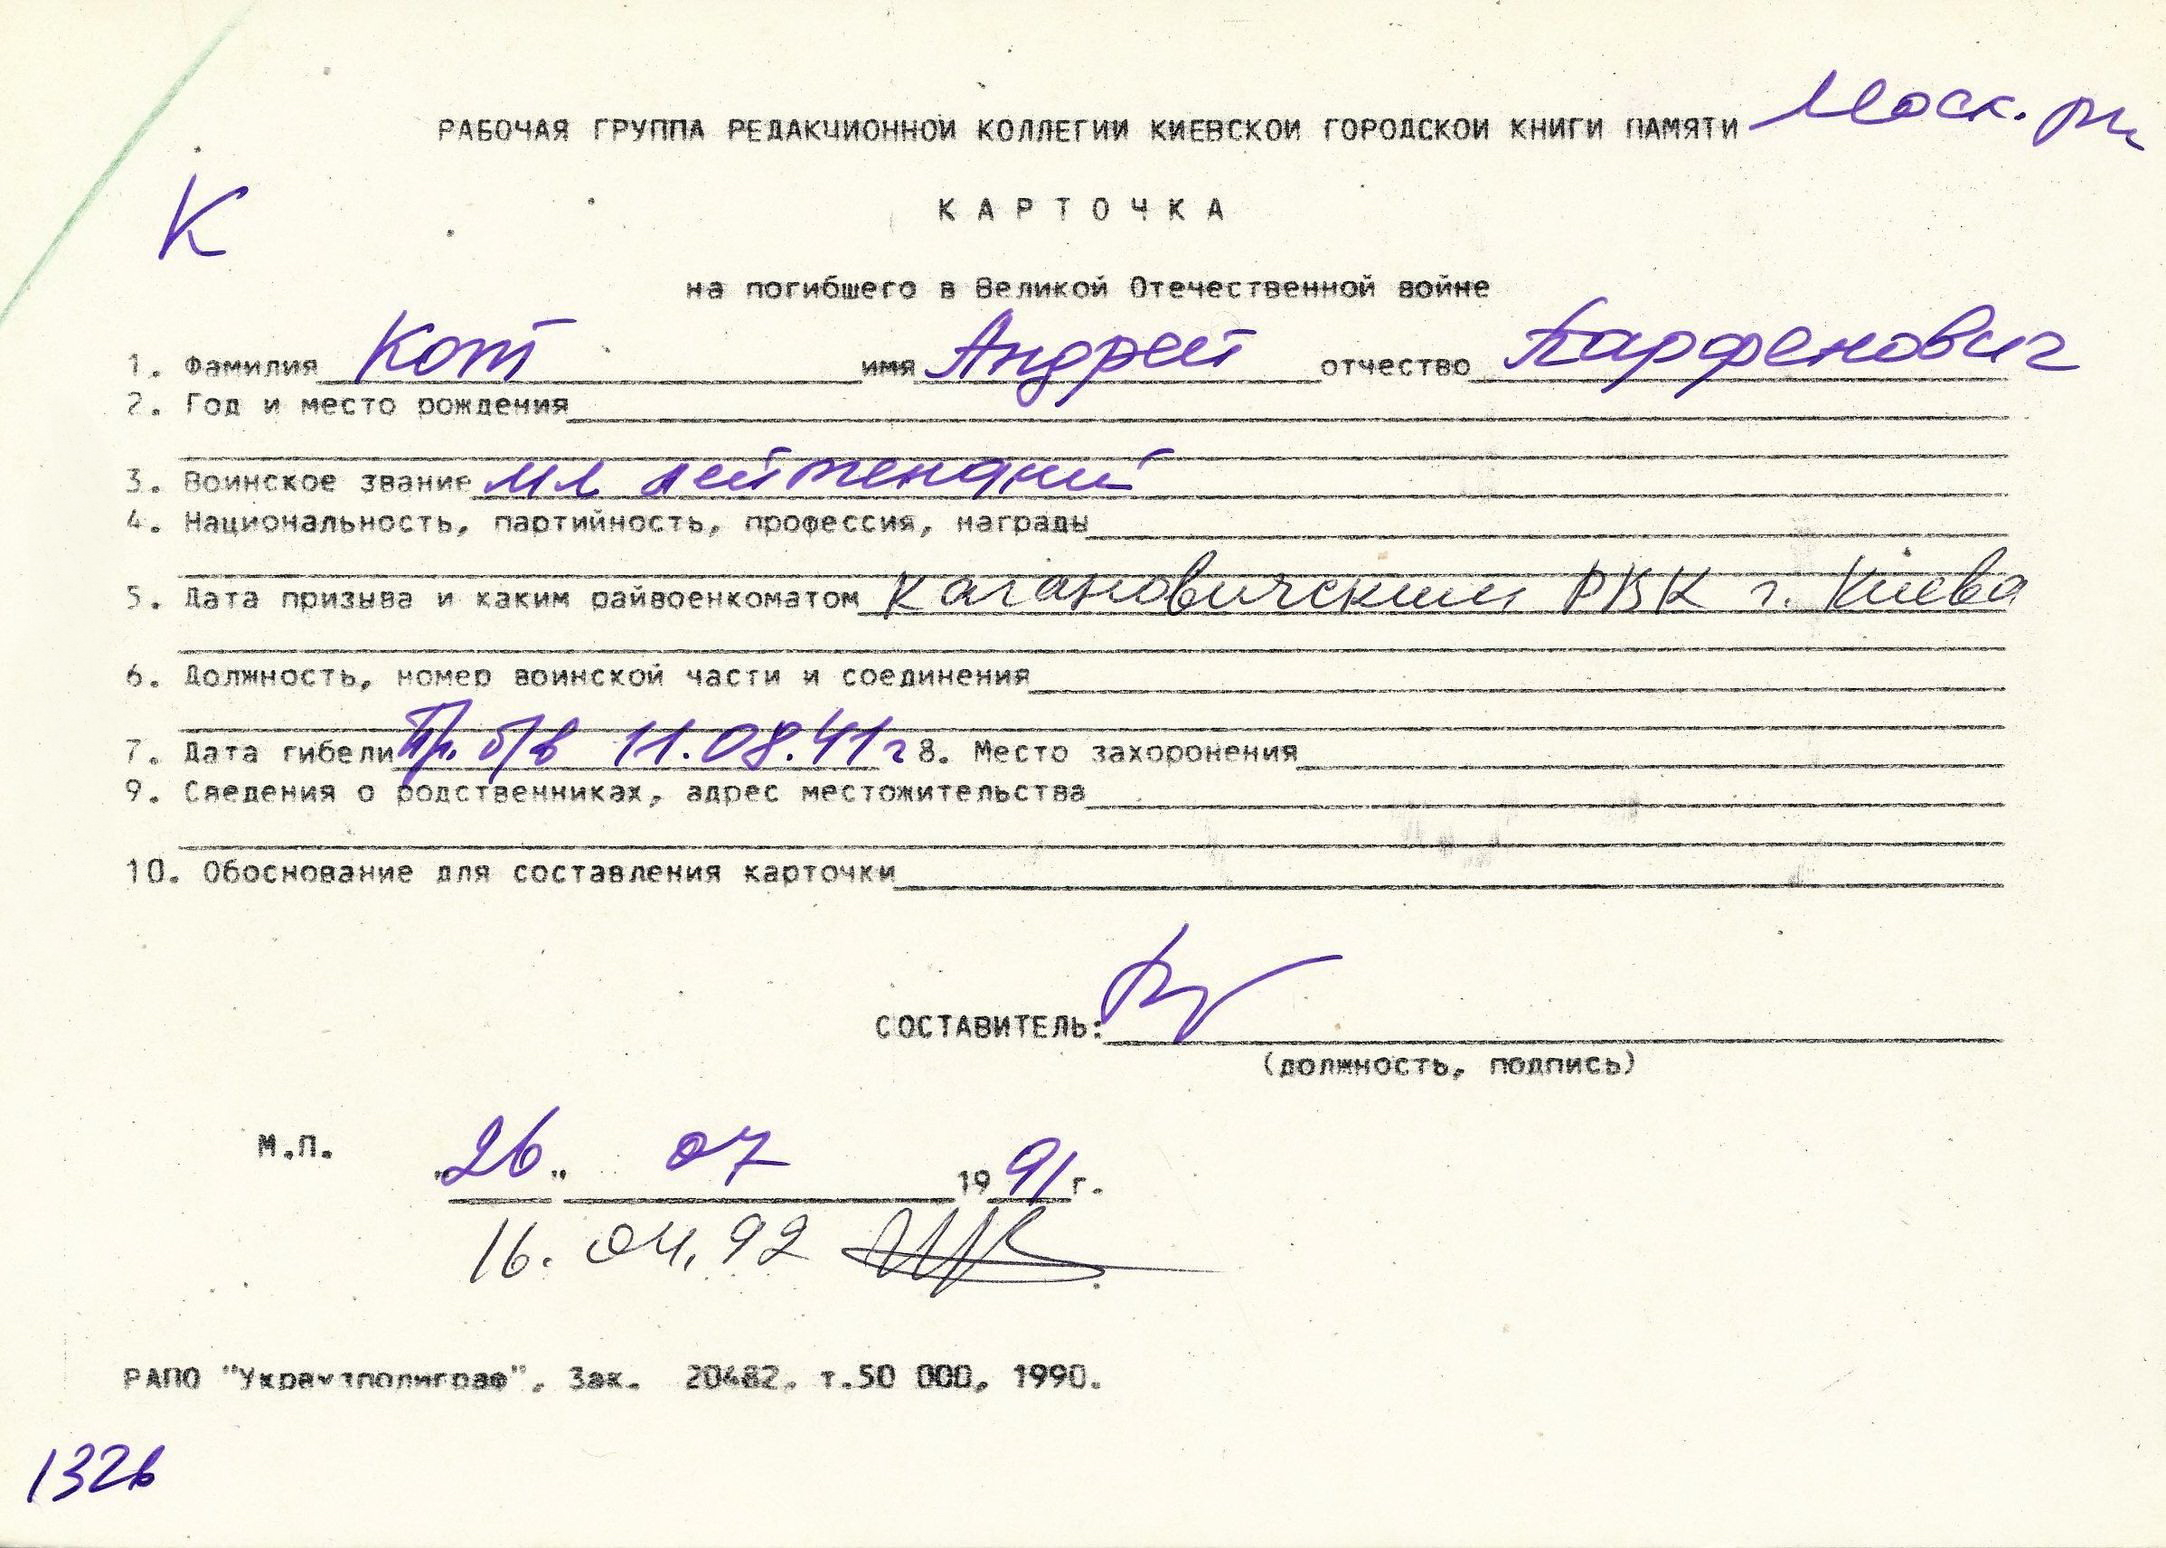 РАБОЧАЯ ГРУППА РЕДАКЦИОННОЙ КОЛЛЕГИИ КИЕВСКОЙ ГОРОДСКОЙ КНИГИ ПАМЯТИ Моск. рн
К
КАРТОЧКА
на погибшего в Великой Отечественной войне
1. Фамилия Кот имя Андрей отчество Парфенович
2. Год и место рождения
3. Воинское звание мл лейтенант
4. Национальность, партийность, профессия, награды
5. Дата призыва и каким райвоенкоматом Кагановичским РВК г. Киева
6. Должность, номер воинской части и соединения
7. Дата гибели Пр. б/в 11.08.41г 8. Место захоронения
9. Сведения о родственниках, адрес местожительства
10. Обоснование для составления карточки
СОСТАВИТЕЛЬ:
(должность, подпись)
М.П.
"26" 07 1991г.
16.04.92
РАПО "Укрвузполиграф", Зак. 20482, т.50 000, 1990.
1326